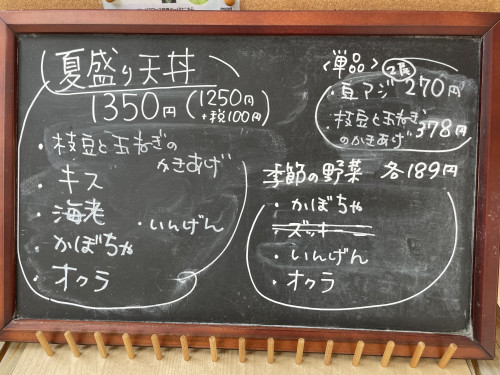 夏盛り天丼
1350円(1250円
+税100円)
・枝豆と玉ねぎの
かきあげ
・キス
・海老
・いんげん
・かぼちゃ
・オクラ
〈単品〉
・豆アジ 270円
・枝豆と玉ねぎ
のかきあげ 378円
季節の野菜 各189円
・かぼちゃ
・ズッキー
・いんげん
・オクラ